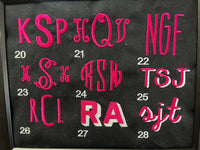 KSP HQU NGF
20 21 22
SXS RSN TSJ
23 24 25
RCL RA sjt
26 27 28